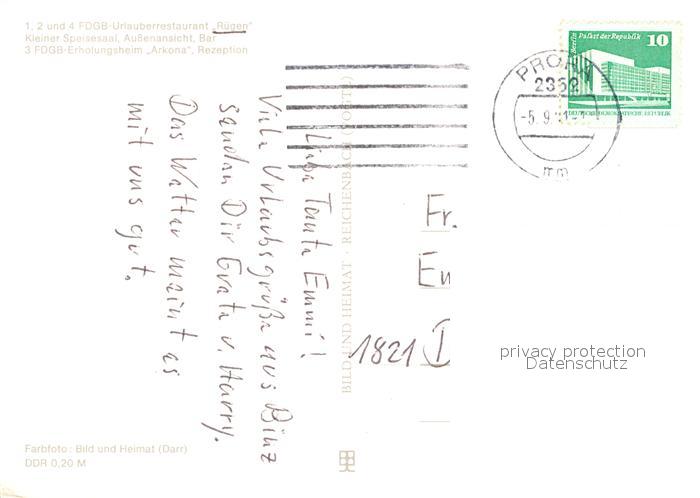 1, 2 und 4 FDGB-Urlauberrestaurant „Rügen"
Kleiner Speisesaal, Außenansicht, Bar
3 FDGB-Erholungsheim „Arkona", Rezeption
Liebe Tante Emmi!
Viele Urlaubsgrüße aus Binz
senden Dir Grete u. Harry.
Das Wetter meint es
mit uns gut.
BILD UND HEIMAT · REICHENBACH (VOGTL)
Berlin Palast der Republik 10
DEUTSCHE DEMOKRATISCHE REPUBLIK
PRORA
2352
-5. 9.
mm
Fr.
Em
1821
privacy protection
Datenschutz
Farbfoto: Bild und Heimat (Darr)
DDR 0,20 M